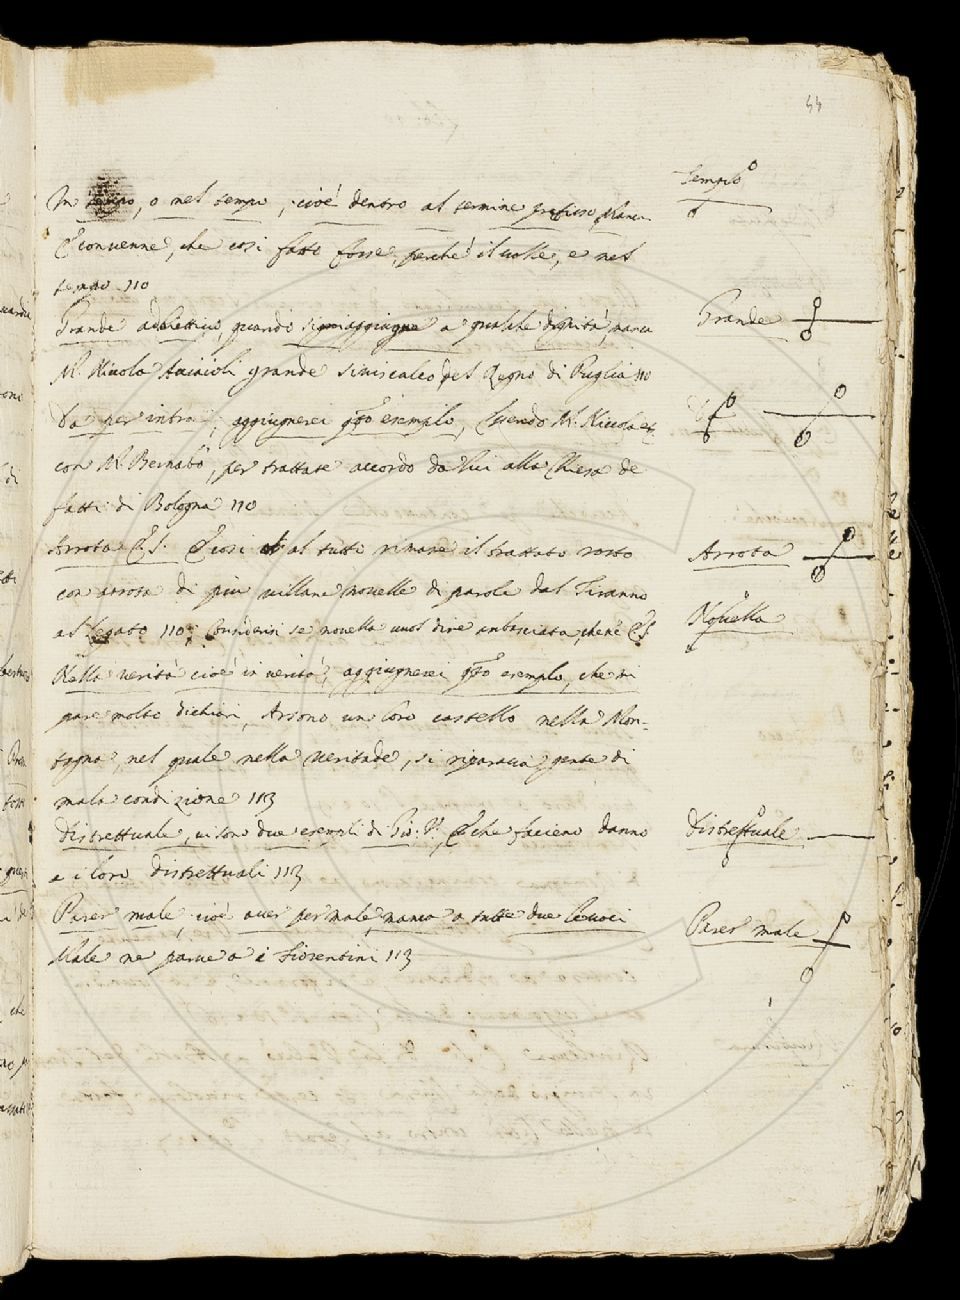 44
Tempo
In tempo, o nel tempo, cioè dentro al termine prefisso, manca
E convenne, che così fatto fosse, perché il volle, e nel
tempo 110
Grande
Grande addiettivo, quando si aggiugne a qualche dignità, manca
M. Niccola Acciaioli grande siniscalco del Regno di Puglia 110
Da per intra, aggiugnerei qsto esempio, Essendo M. Niccola
con M. Bernabò, per trattare accordo da lui alla Chiesa de
fatti di Bologna 110
Arrota
Arrota E al tutto rimase il trattato rotto
con arrota di più villane novelle di parole dal Tiranno
al Legato 110; Considerisi se novella vuol dire ambasciata, che
Novella
Nella verità cioè in verità, aggiugnerei qsto esempio, che mi
pare molto dichiari, Arsono un loro castello nella Mon-
tagna, nel quale nella veritade, si riparava gente di
mala condizione 113
Distrettuale
Distrettuale, vi sono due esempli di Gio: V. E che facieno danno
a i loro distrettuali 113
Parer male
Parer male, cioè aver per male, manca a tutte due le voci
Male ne parve a i Fiorentini 113